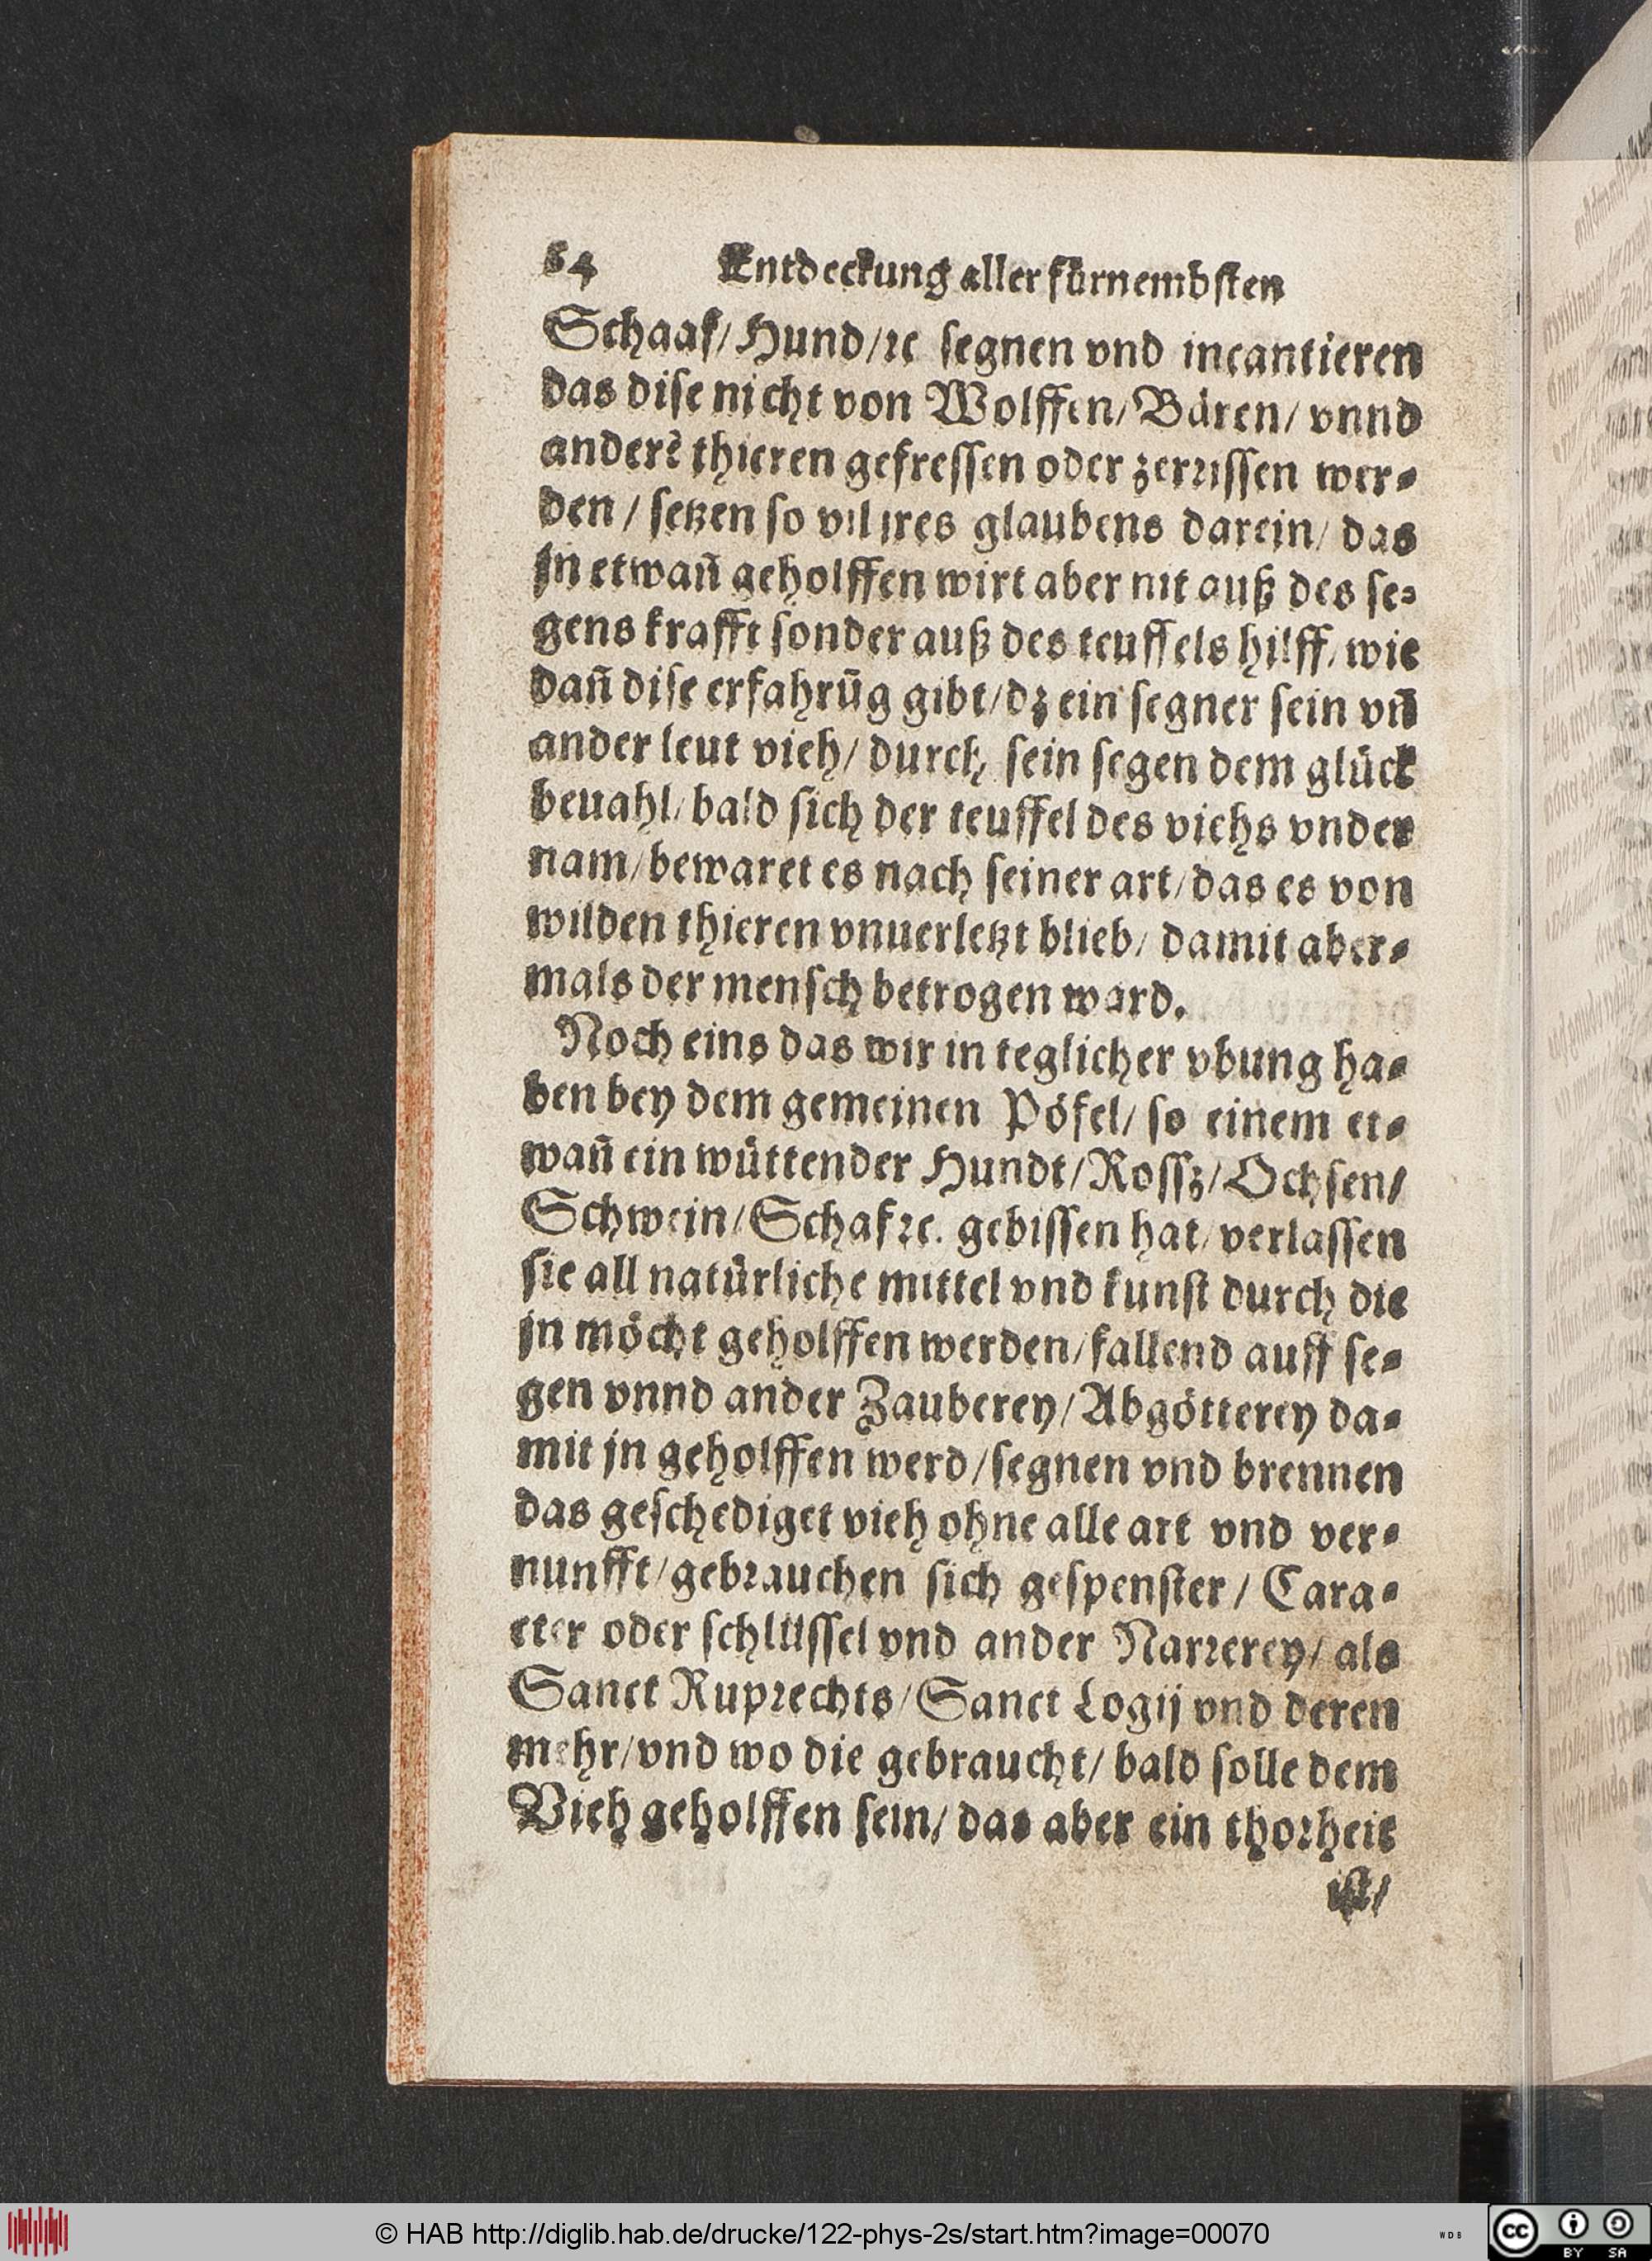 64 Entdeckung aller fürnembsten
Schaaf/ Hund/ꝛc segnen vnd incantieren
das dise nicht von Wolffen/ Bären/ vnnd
anderẽ thieren gefressen oder zerꝛissen wer⸗
den / setzen so vil jres glaubens darein/ das
jn etwañ geholffen wirt aber nit auß des se⸗
gens krafft sonder auß des teuffels hilff/ wie
dañ dise erfahrũg gibt/ dz ein segner sein vñ
ander leut vieh/ durch sein segen dem glück
beuahl/ bald sich der teuffel des viehs vnder
nam/ bewaret es nach seiner art/ das es von
wilden thieren vnuerletzt blieb/ damit aber⸗
mals der mensch betrogen ward.
Noch eins das wir in teglicher vbung ha⸗
ben bey dem gemeinen Pöfel/ so einem et⸗
wañ ein wüttender Hundt/ Rossz/ Ochsen/
Schwein/ Schaf ꝛc. gebissen hat/ verlassen
sie all natürliche mittel vnd kunst durch die
jn möcht geholffen werden/ fallend auff se⸗
gen vnnd ander Zauberey/ Abgötterey da⸗
mit jn geholffen werd/ segnen vnd brennen
das geschediget vieh ohne alle art vnd ver⸗
nunfft/ gebꝛauchen sich gespenster / Cara⸗
cter oder schlüssel vnd ander Narꝛerey/ als
Sanct Rupꝛechts/ Sanct Logij vnd deren
mehr/ vnd wo die gebraucht/ bald solle dem
Vieh geholffen sein/ das aber ein thoꝛheit
ist/
© HAB http://diglib.hab.de/drucke/122-phys-2s/start.htm?image=00070
WDB
cc BY SA